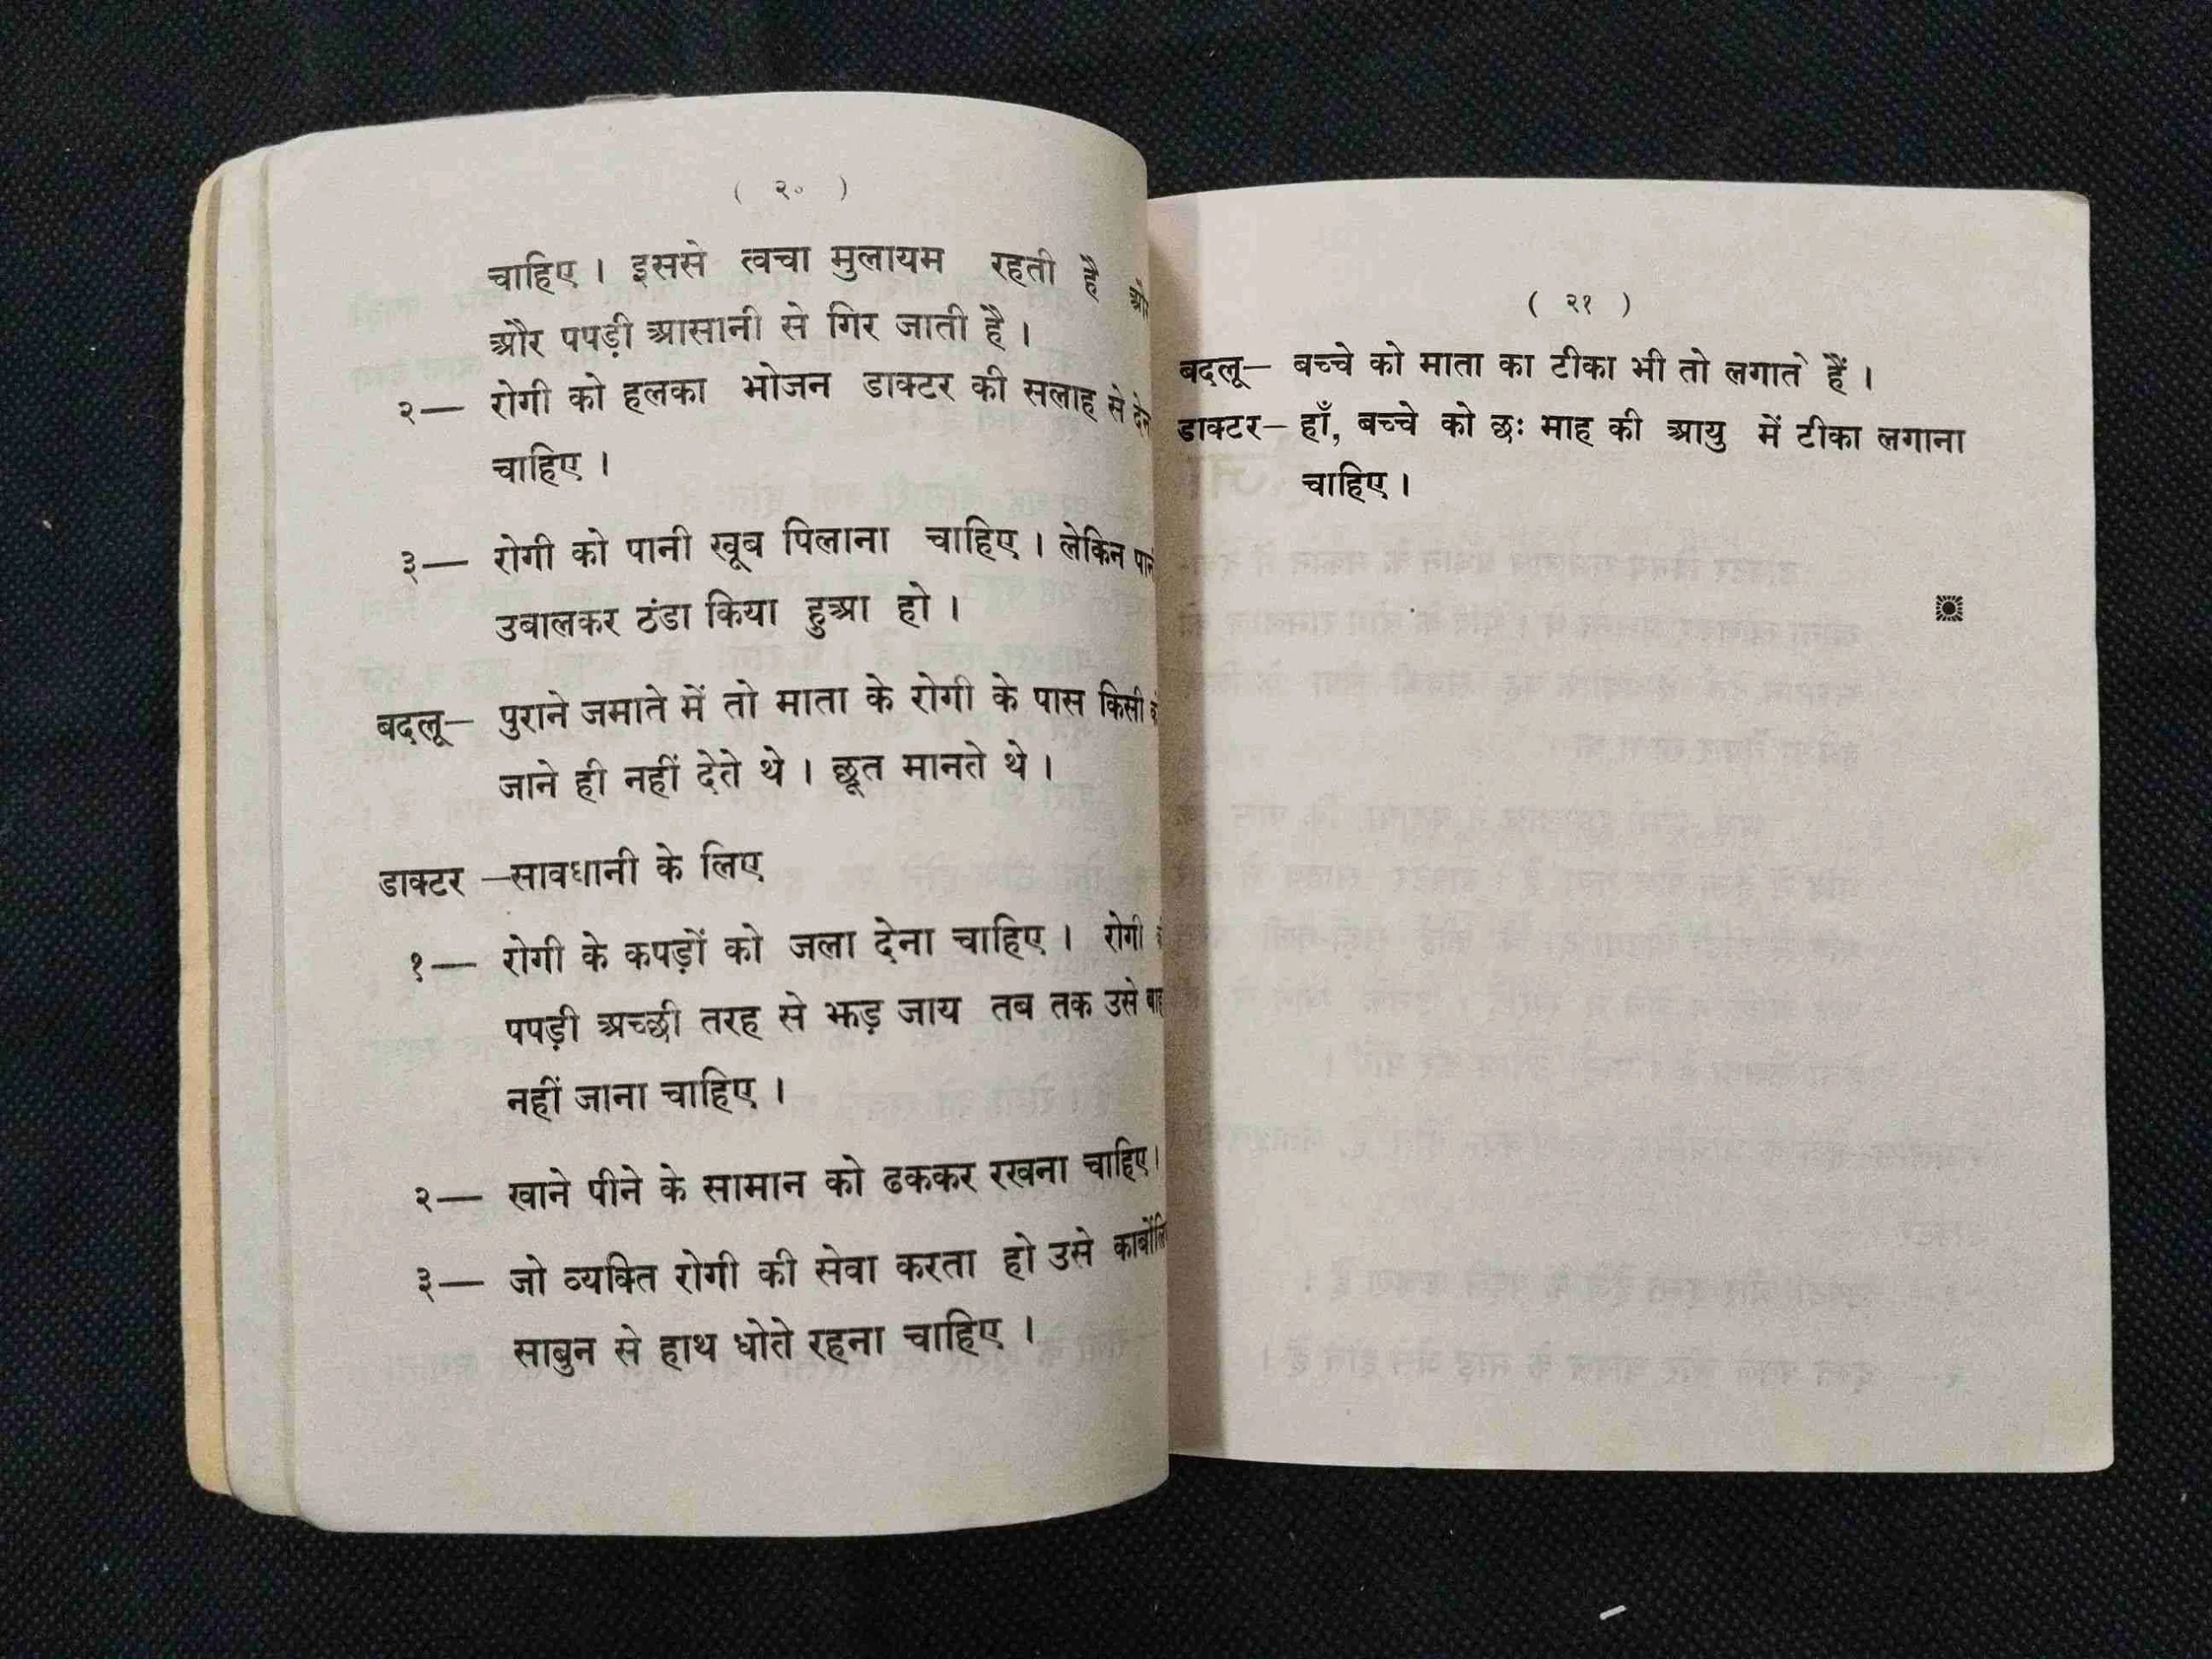 ( २० )
चाहिए । इससे त्वचा मुलायम रहती है
और पपड़ी आसानी से गिर जाती है ।
२— रोगी को हलका भोजन डाक्टर की सलाह से
चाहिए ।
३— रोगी को पानी खूब पिलाना चाहिए । लेकिन
उबालकर ठंडा किया हुआ हो ।
बदलू— पुराने जमाते में तो माता के रोगी के पास किसी
जाने ही नहीं देते थे । छूत मानते थे ।
डाक्टर —सावधानी के लिए
१— रोगी के कपड़ों को जला देना चाहिए । रोगी
पपड़ी अच्छी तरह से झड़ जाय तब तक उसे
नहीं जाना चाहिए ।
२— खाने पीने के सामान को ढककर रखना चाहिए ।
३— जो व्यक्ति रोगी की सेवा करता हो उसे
साबुन से हाथ धोते रहना चाहिए ।
( २१ )
बदलू— बच्चे को माता का टीका भी तो लगाते हैं ।
डाक्टर— हाँ, बच्चे को छः माह की आयु में टीका लगाना
चाहिए ।